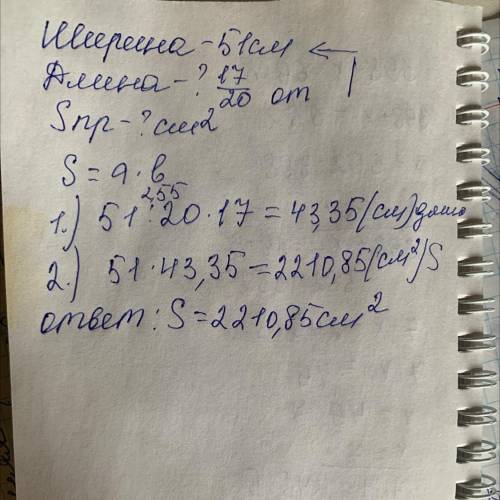 Ширина - 51см
Длина - ? 17/20 от
Sпр - ? см²
S = а · в
2,55
1.) 51 : 20 · 17 = 43,35 (см) длина
2.) 51 · 43,35 = 2210,85 (см²) S
ответ : S = 2210,85 см²